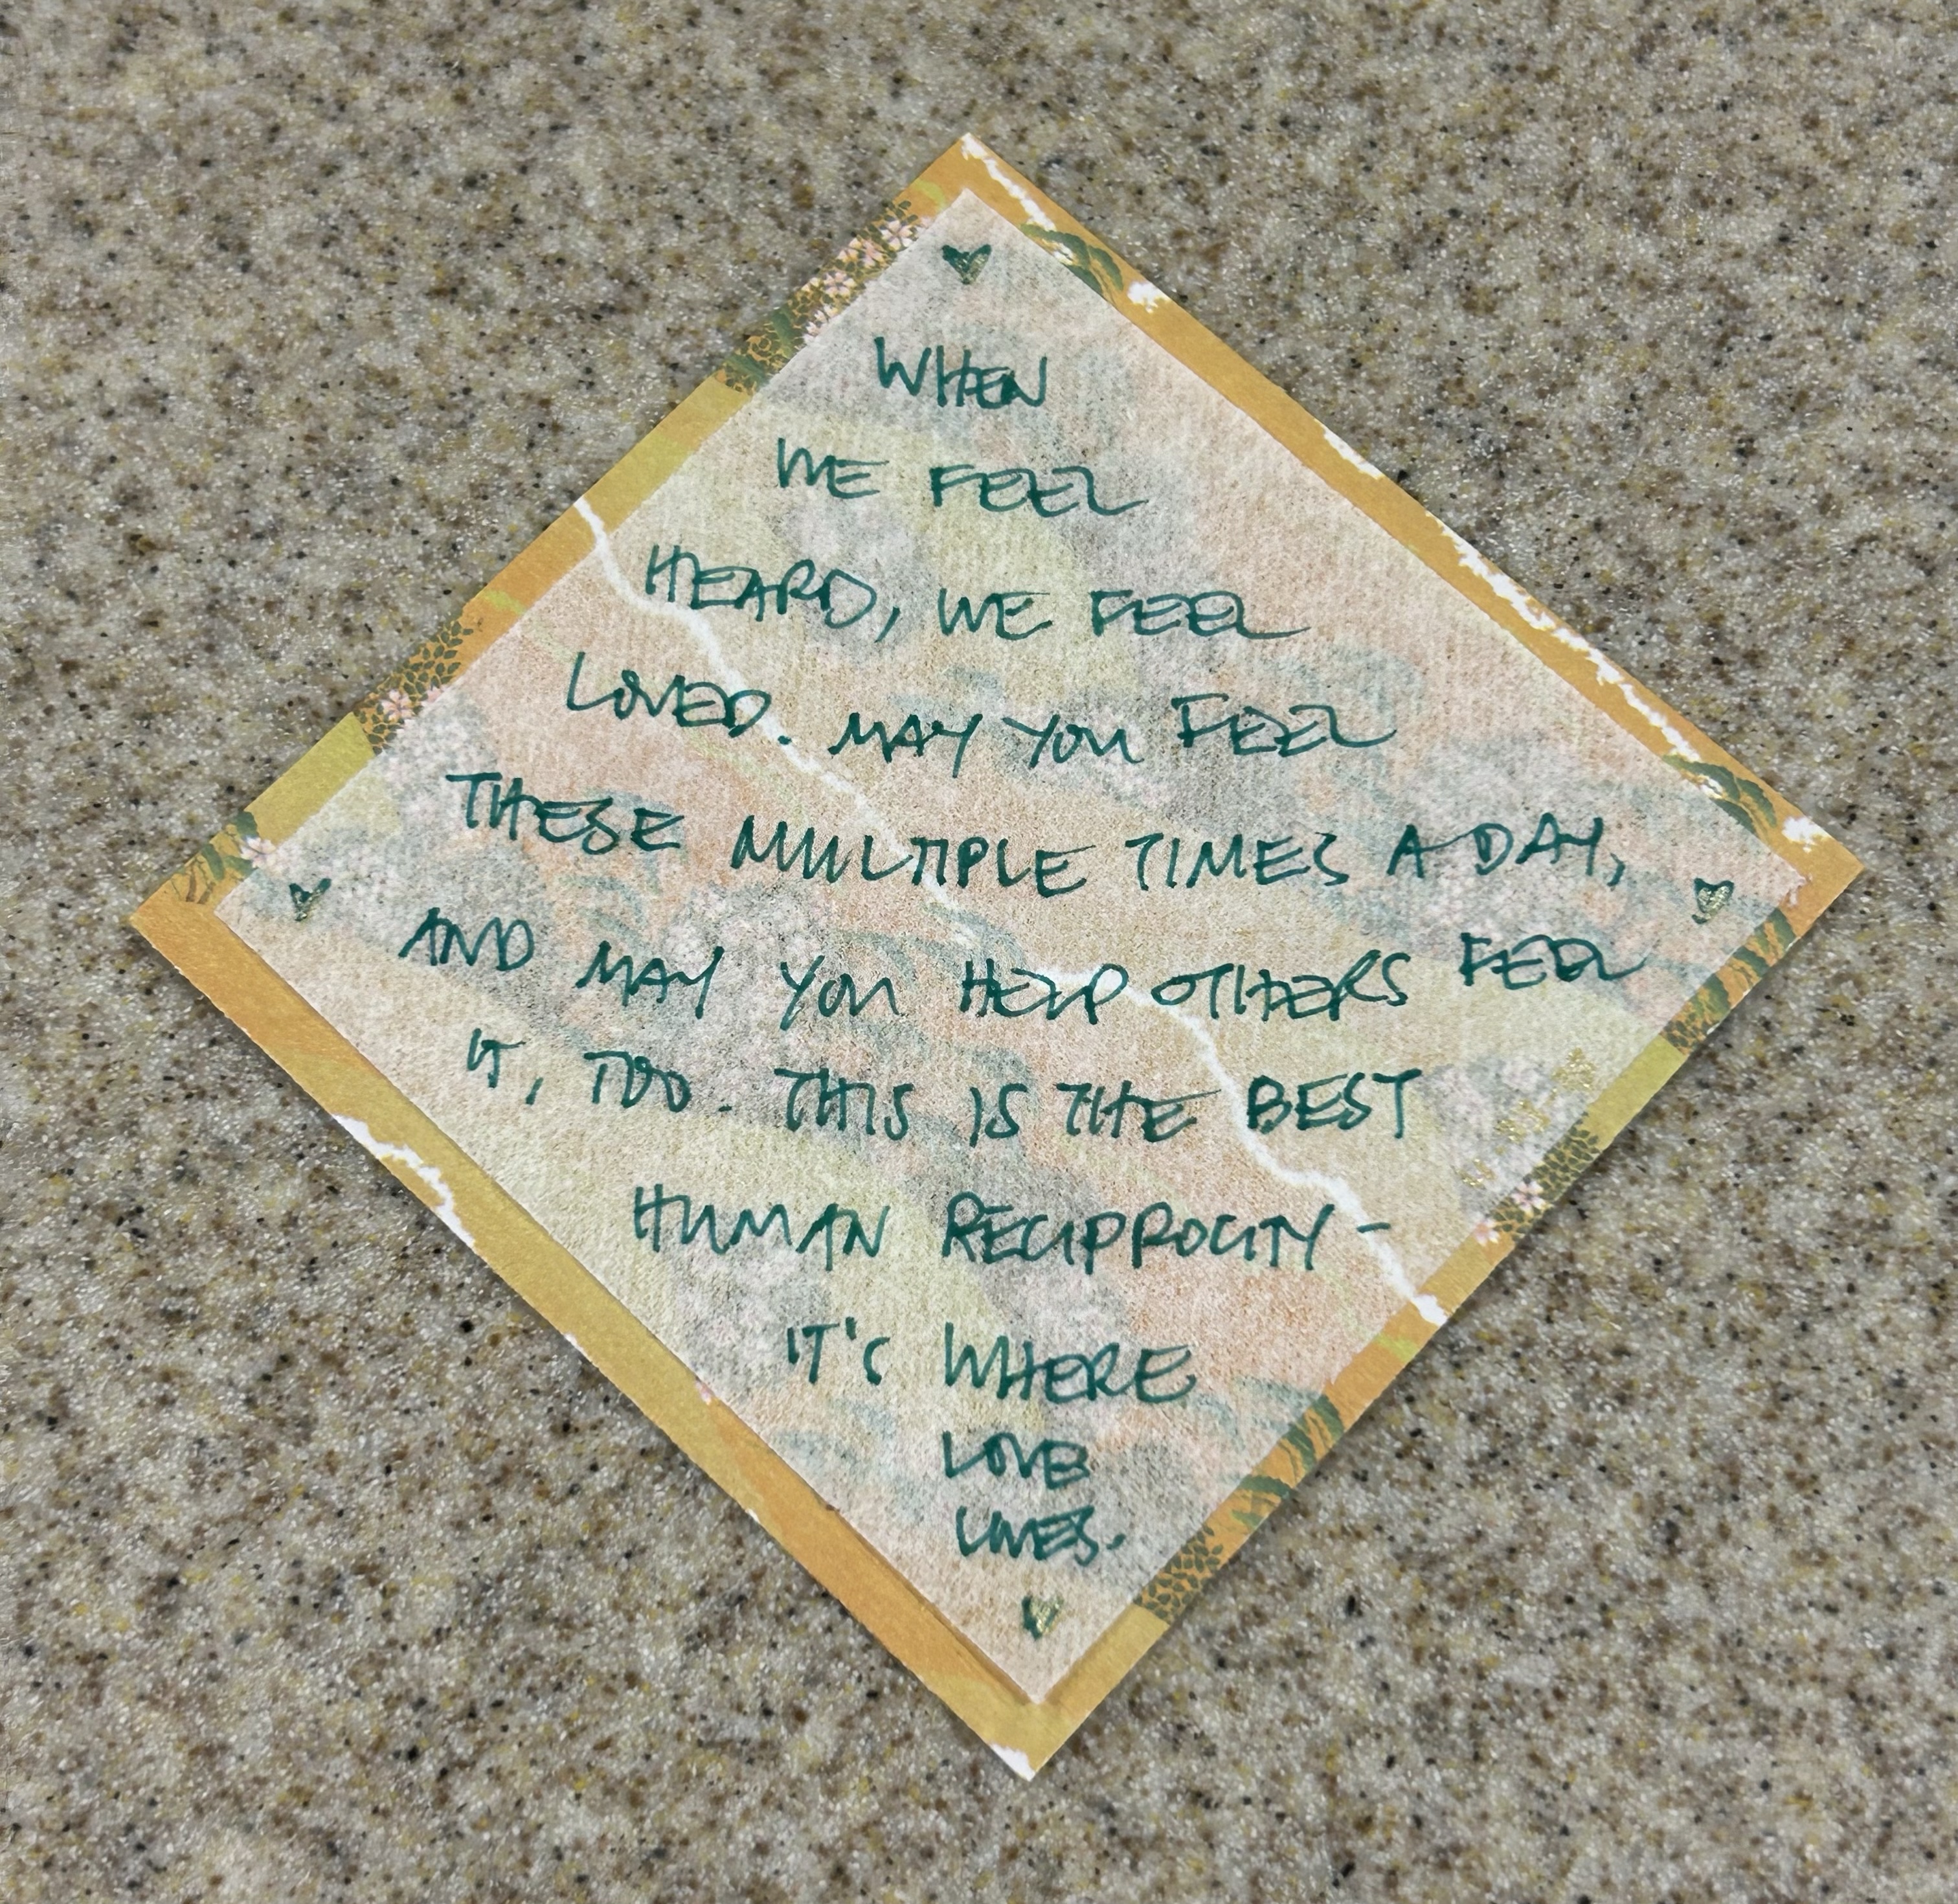 WHEN
WE FEEL
HEARD, WE FEEL
LOVED. MAY YOU FEEL
THESE MULTIPLE TIMES A DAY,
AND MAY YOU HELP OTHERS FEEL
IT, TOO. THIS IS THE BEST
HUMAN RECIPROCITY -
IT'S WHERE
LOVE
LIVES.